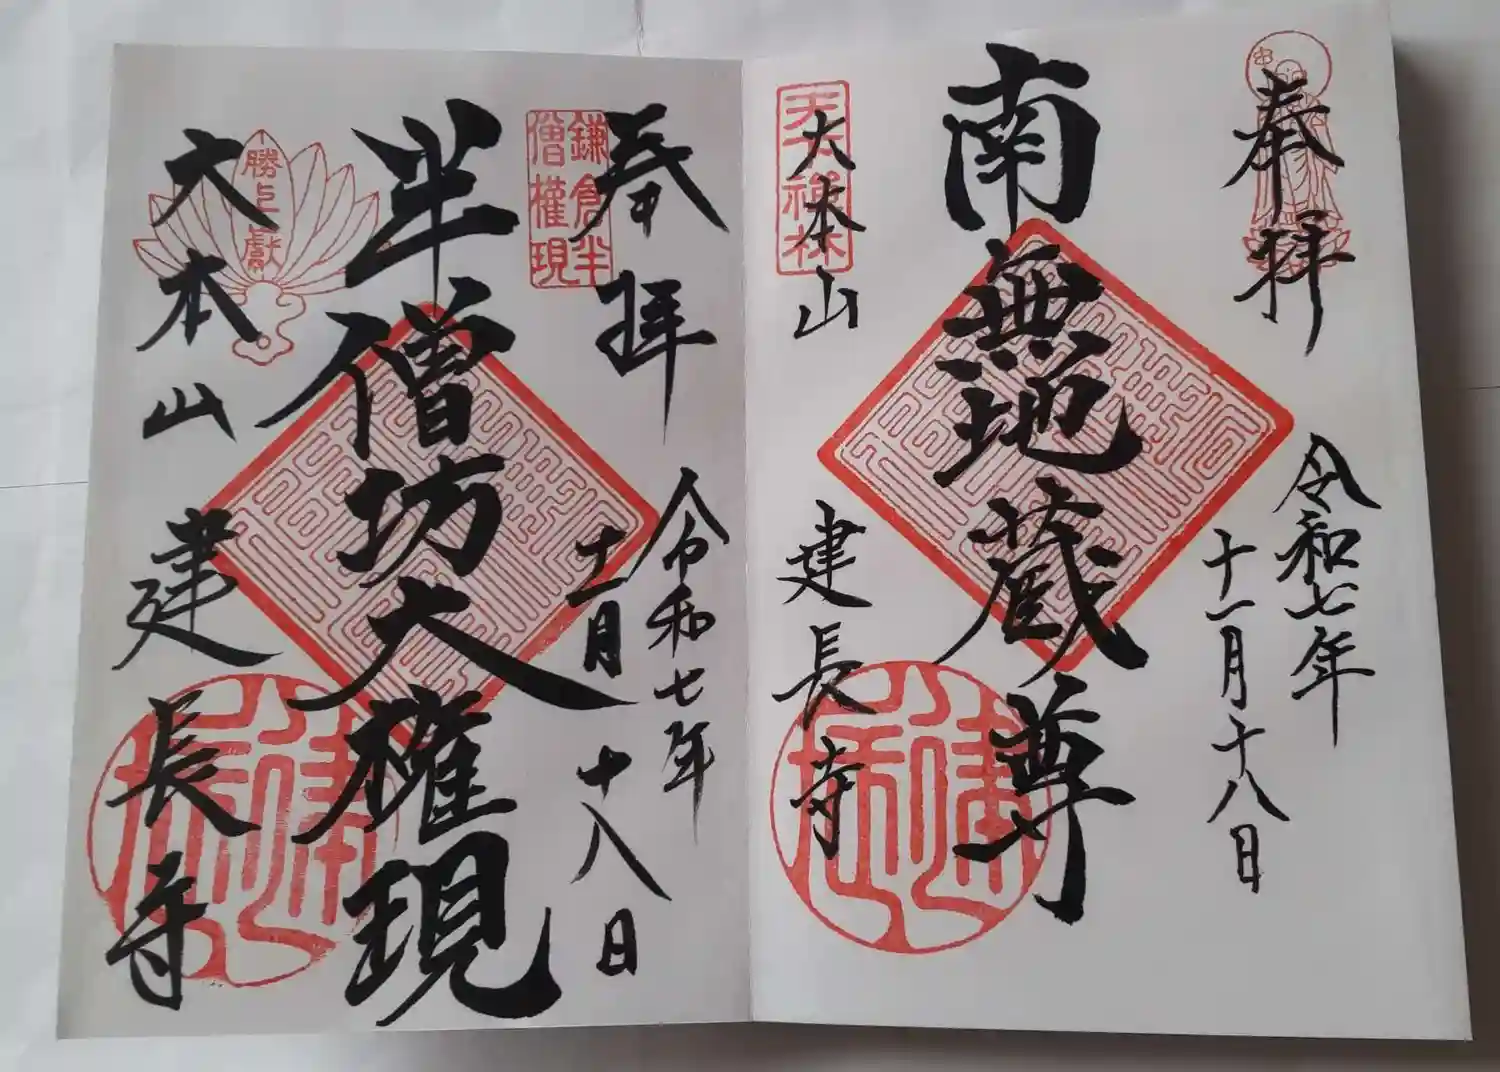 奉拝
令和七年
十一月十八日
南無地蔵尊
大本山
建長寺
天下禅林
奉拝
令和七年
十一月
十八日
鎌倉半
僧權現
半僧坊大権現
大本山
建長寺
勝上嶽